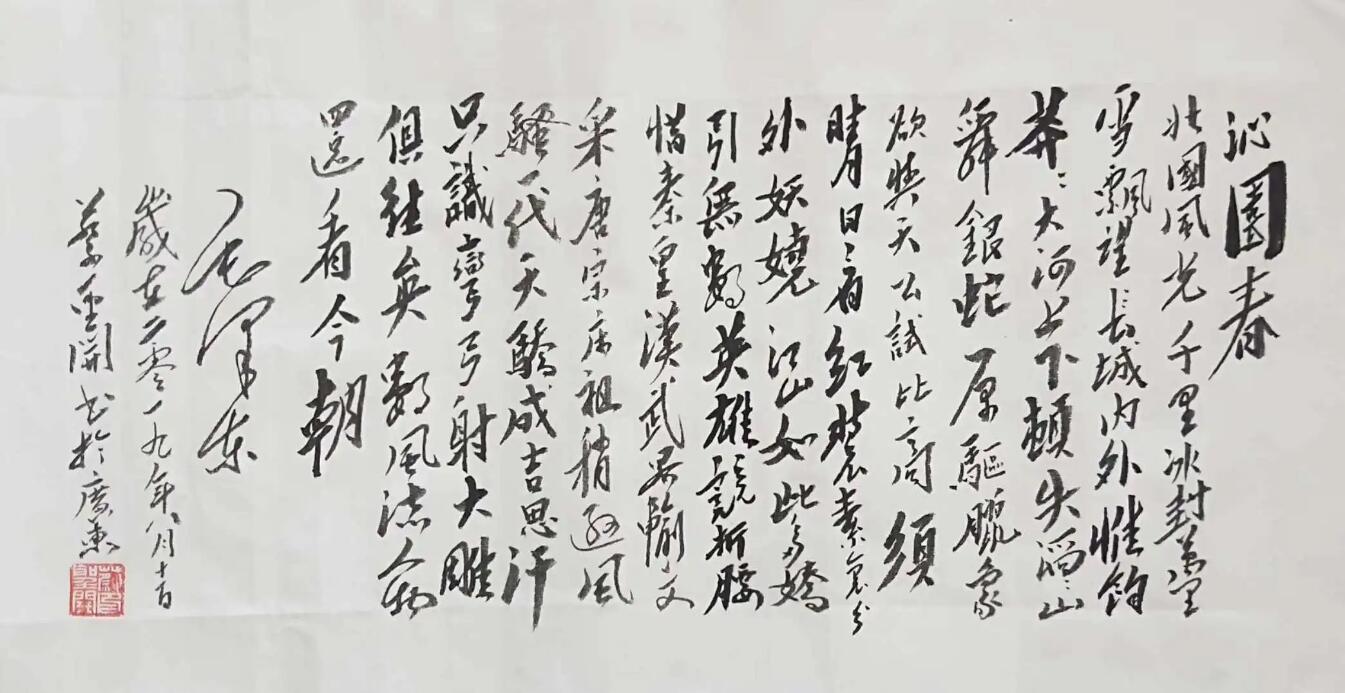 沁園春
北國風光千里冰封萬里
雪飄望長城內外惟餘
莽〻大河上下頓失滔〻山
舞銀蛇原驅臘象
欲與天公試比高須
晴日〻看紅裝素裹分
外妖嬈江山如此多嬌
引無數英雄競折腰
惜秦皇漢武略輸文
采唐宗宋祖稍遜風
騷一代天驕成吉思汗
只識彎弓射大雕
俱往矣數風流人物
還看今朝
毛澤東
歲在二零一九年八月十日
蔡聖開書於廣東